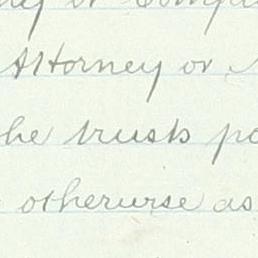 or Compa
Attorney or
he trusts po
otherwise as